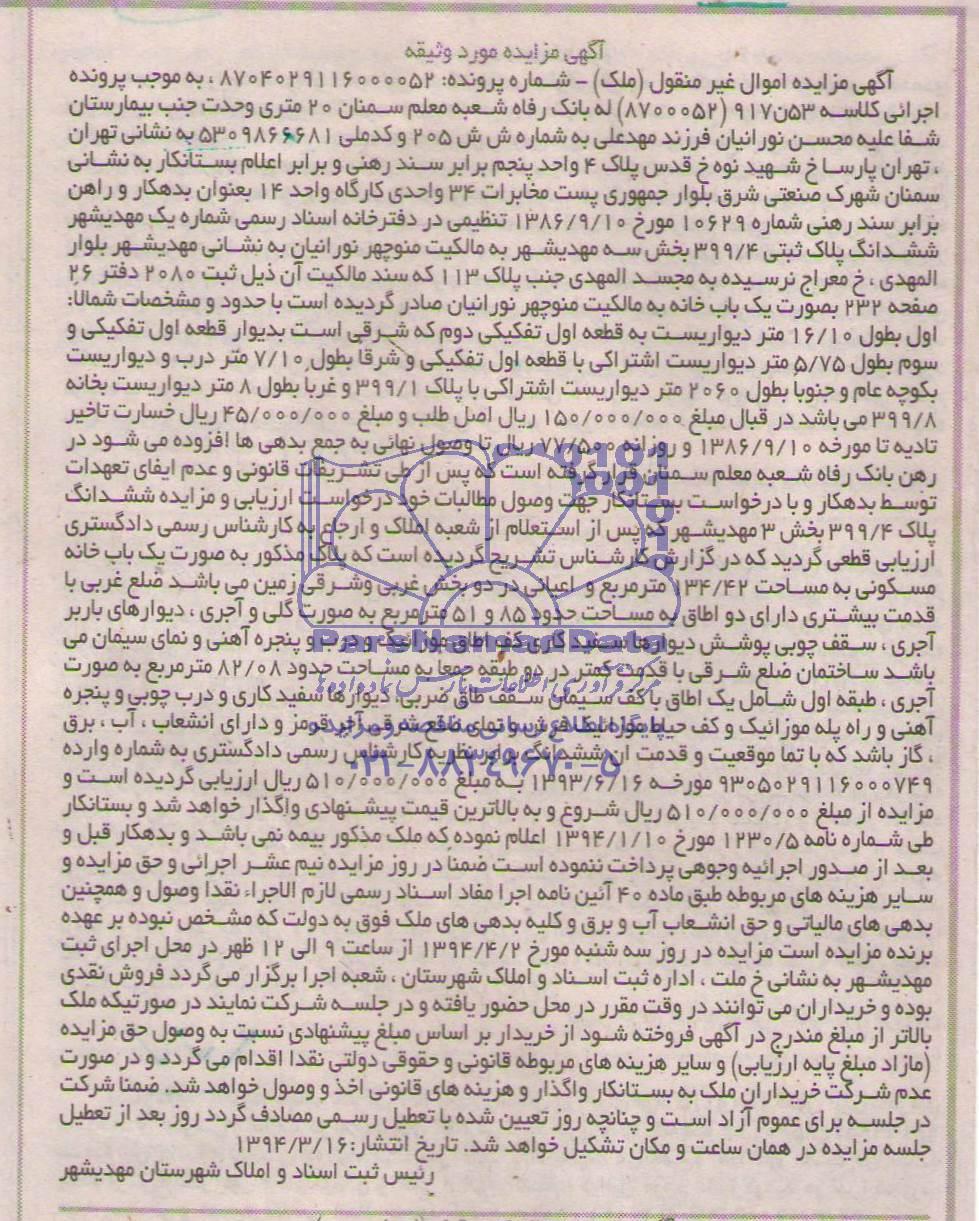 آگهی مزایده مورد وثیقه
آگهی مزایده اموال غیر منقول (ملک) – شماره پرونده: ۸۷۰۴۰۲۹۱۱۶۰۰۰۰۵۲ ، به موجب پرونده
اجرائی کلاسه ۵۳ن۹۱۷ (۸۷۰۰۰۵۲) له بانک رفاه شعبه معلم سمنان ۲۰ متری وحدت جنب بیمارستان
شفا علیه محسن نورانیان فرزند مهدعلی به شماره ش ش ۲۰۵ و کدملی ۵۳۰۹۸۶۶۶۸۱ به نشانی تهران
، تهران پارسا خ شهید نوه خ قدس پلاک ۴ واحد پنجم برابر سند رهنی و برابر اعلام بستانکار به نشانی
سمنان شهرک صنعتی شرق بلوار جمهوری پست مخابرات ۳۴ واحدی کارگاه واحد ۱۴ بعنوان بدهکار و راهن
برابر سند رهنی شماره ۱۰۶۲۹ مورخ ۱۳۸۶/۹/۱۰ تنظیمی در دفترخانه اسناد رسمی شماره یک مهدیشهر
ششدانگ پلاک ثبتی ۳۹۹/۴ بخش سه مهدیشهر به مالکیت منوچهر نورانیان به نشانی مهدیشهر بلوار
المهدی ، خ معراج نرسیده به مجسد المهدی جنب پلاک ۱۱۳ که سند مالکیت آن ذیل ثبت ۲۰۸۰ دفتر ۲۶
صفحه ۲۳۲ بصورت یک باب خانه به مالکیت منوچهر نورانیان صادر گردیده است با حدود و مشخصات شمالا:
اول بطول ۱۶/۱۰ متر دیواریست به قطعه اول تفکیکی دوم که شرقی است بدیوار قطعه اول تفکیکی و
سوم بطول ۵/۷۵ متر دیواریست اشتراکی با قطعه اول تفکیکی و شرقا بطول ۷/۱۰ متر درب و دیواریست
بکوچه عام و جنوبا بطول ۲۰۶۰ متر دیواریست اشتراکی با پلاک ۳۹۹/۱ و غربا بطول ۸ متر دیواریست بخانه
۳۹۹/۸ می باشد در قبال مبلغ ۱۵۰/۰۰۰/۰۰۰ ریال اصل طلب و مبلغ ۴۵/۰۰۰/۰۰۰ ریال خسارت تاخیر
تادیه تا مورخه ۱۳۸۶/۹/۱۰ و روزانه ۷۷/۵۰۰ ریال تا وصول نهائی به جمع بدهی ها افزوده می شود در
رهن بانک رفاه شعبه معلم سمنان قرار گرفته است که پس از طی تشریفات قانونی و عدم ایفای تعهدات
توسط بدهکار و با درخواست بستانکار جهت وصول مطالبات خود درخواست ارزیابی و مزایده ششدانگ
پلاک ۳۹۹/۴ بخش ۳ مهدیشهر که پس از استعلام از شعبه املاک و ارجاع به کارشناس رسمی دادگستری
ارزیابی قطعی گردید که در گزارش کارشناس تشریح گردیده است که پلاک مذکور به صورت یک باب خانه
مسکونی به مساحت ۱۳۴/۴۲ مترمربع و اعیانی در دو بخش غربی وشرقی زمین می باشد ضلع غربی با
قدمت بیشتری دارای دو اطاق به مساحت حدود ۸۵ و ۵۱ مترمربع به صورت گلی و آجری ، دیوارهای باربر
آجری ، سقف چوبی پوشش دیوارها سفید کاری کف اطاق موزائیک و درب و پنجره آهنی و نمای سیمان می
باشد ساختمان ضلع شرقی با قدمت کمتر در دو طبقه جمعا به مساحت حدود ۸۲/۰۸ مترمربع به صورت
آجری ، طبقه اول شامل یک اطاق با کف سیمان سقف طاق ضربی، دیوارها سفید کاری و درب چوبی و پنجره
آهنی و راه پله موزائیک و کف حیاط موزائیک فرش و نمای ضلع شرقی آجر قرمز و دارای انشعاب ، آب ، برق
، گاز باشد که با تما موقعیت و قدمت ان ششدانگ برابر نظریه کارشناس رسمی دادگستری به شماره وارده
۹۳۰۵۰۲۹۱۱۶۰۰۰۷۴۹ مورخه ۱۳۹۳/۶/۱۶ به مبلغ ۵۱۰/۰۰۰/۰۰۰ ریال ارزیابی گردیده است و
مزایده از مبلغ ۵۱۰/۰۰۰/۰۰۰ ریال شروع و به بالاترین قیمت پیشنهادی واگذار خواهد شد و بستانکار
طی شماره نامه ۱۲۳۰/۵ مورخ ۱۳۹۴/۱/۱۰ اعلام نموده که ملک مذکور بیمه نمی باشد و بدهکار قبل و
بعد از صدور اجرائیه وجوهی پرداخت ننموده است ضمنا در روز مزایده نیم عشر اجرائی و حق مزایده و
سایر هزینه های مربوطه طبق ماده ۴۰ آئین نامه اجرا مفاد اسناد رسمی لازم الاجراء نقدا وصول و همچنین
بدهی های مالیاتی و حق انشعاب آب و برق و کلیه بدهی های ملک فوق به دولت که مشخص نبوده بر عهده
برنده مزایده است مزایده در روز سه شنبه مورخ ۱۳۹۴/۴/۲ از ساعت ۹ الی ۱۲ ظهر در محل اجرای ثبت
مهدیشهر به نشانی خ ملت ، اداره ثبت اسناد و املاک شهرستان ، شعبه اجرا برگزار می گردد فروش نقدی
بوده و خریداران می توانند در وقت مقرر در محل حضور یافته و در جلسه شرکت نمایند در صورتیکه ملک
بالاتر از مبلغ مندرج در آگهی فروخته شود از خریدار بر اساس مبلغ پیشنهادی نسبت به وصول حق مزایده
(مازاد مبلغ پایه ارزیابی) و سایر هزینه های مربوطه قانونی و حقوقی دولتی نقدا اقدام می گردد و در صورت
عدم شرکت خریداران ملک به بستانکار واگذار و هزینه های قانونی اخذ و وصول خواهد شد. ضمنا شرکت
در جلسه برای عموم آزاد است و چنانچه روز تعیین شده با تعطیل رسمی مصادف گردد روز بعد از تعطیل
جلسه مزایده در همان ساعت و مکان تشکیل خواهد شد. تاریخ انتشار: ۱۳۹۴/۳/۱۶
رئیس ثبت اسناد و املاک شهرستان مهدیشهر
ParsNamadData
۰۲۱-۸۸۳۴۹۶۷۰-۵